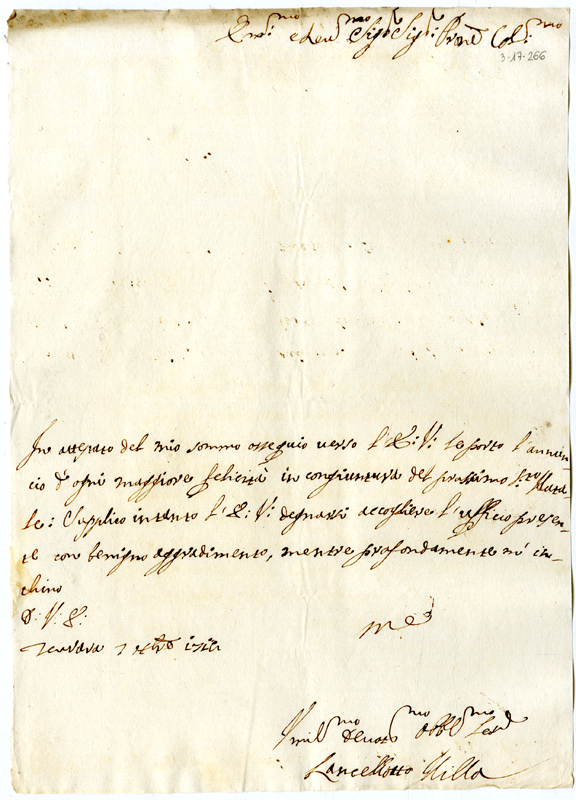 Em.mo e Reu.mo Sig.r Sig.r Prone Col.mo
3-17-266
In attestato del mio sommo osseguio uerso l'E: V: le porto l'annun-
cio d'ogni maggiore felicità in congiuntura del prossimo S.to Nata-
le: Supplico intanto l'E: V: degnarsi accogliere l'ufficio presen-
te con benigno aggradimento, mentre profondamente m'in-
chino
D: V: E:
Ferrara
Vmil.mo Deuot.mo Obbl.mo Ser.e
Lancellotto Villa